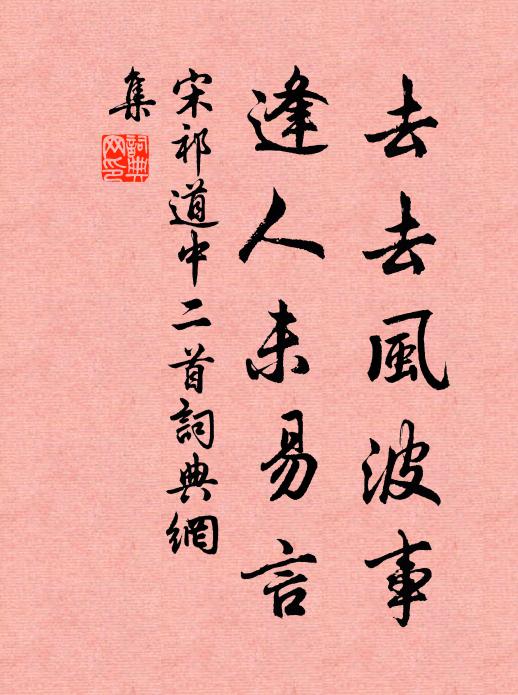 去去風波事
逢人未易言
宋祁道中二首詞典網
集
詞典網印